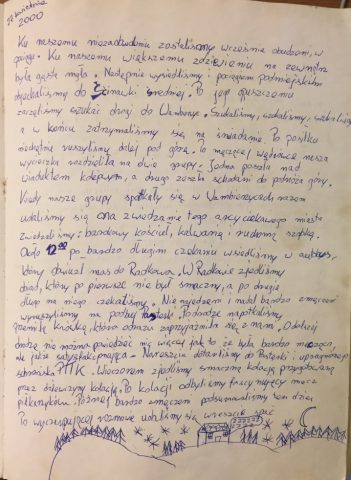 28 kwietnia
2000
Ku naszemu niezadowoleniu zostaliśmy wcześnie obudzeni, w
pociągu. Ku naszemu większemu zdziwieniu na zewnątrz
była gęsta mgła. Następnie wysiedliśmy i pociągiem podmiejskim
dojechaliśmy do Ścinawki Średniej. Po jego opuszczeniu
zaczęliśmy szukać drogi do Wambierzyc. Szukaliśmy, szukaliśmy, szukaliśmy
a w końcu zatrzymaliśmy się na śniadanie. Po posiłku
niechętnie ruszyliśmy dalej pod górę. Po męczącej wędrówce nasza
wycieczka rozdzieliła na dwie grupy. Jedna poszła nad
wiaduktem kolejowym, a druga zeszła schodami do podnóża góry.
Kiedy nasze grupy spotkały się w Wambierzycach razem
udaliśmy się ona zwiedzanie tego arcy ciekawego miasta
Zwiedzaliśmy: barokowy kościół, kalwarię i ruchomą szopkę.
Około 12⁰⁰ po bardzo długim czekaniu wsiedliśmy w autobus,
który dowiózł nas do Radkowa. W Radkowie zjedliśmy
obiad, który po pierwsze nie był smaczny, a po drugie
długo na niego czekaliśmy. Nie najedzeni i nadal bardzo zmęczeni
wyruszyliśmy na podbój Pasterki. Po drodze napotkaliśmy
ogromną krówkę, która odrazu zaprzyjaźniła się z nami. O dalszej
drodze nie można powiedzieć nic więcej jak to że była bardzo męcząca,
ale jakże satysfakcjonująca. Nareszcie dotarliśmy do Pasterki i upragnionego
schroniska PTTK. Wieczorem zjedliśmy smaczną kolację przygotowaną
przez dziewczyny kolację. Po kolacji odbyliśmy trzymający mecz
piłkarzyków. Później bardzo zmęczeni podsumowaliśmy ten dzień
Po wyczerpującej rozmowie udaliśmy się wreszcie spać